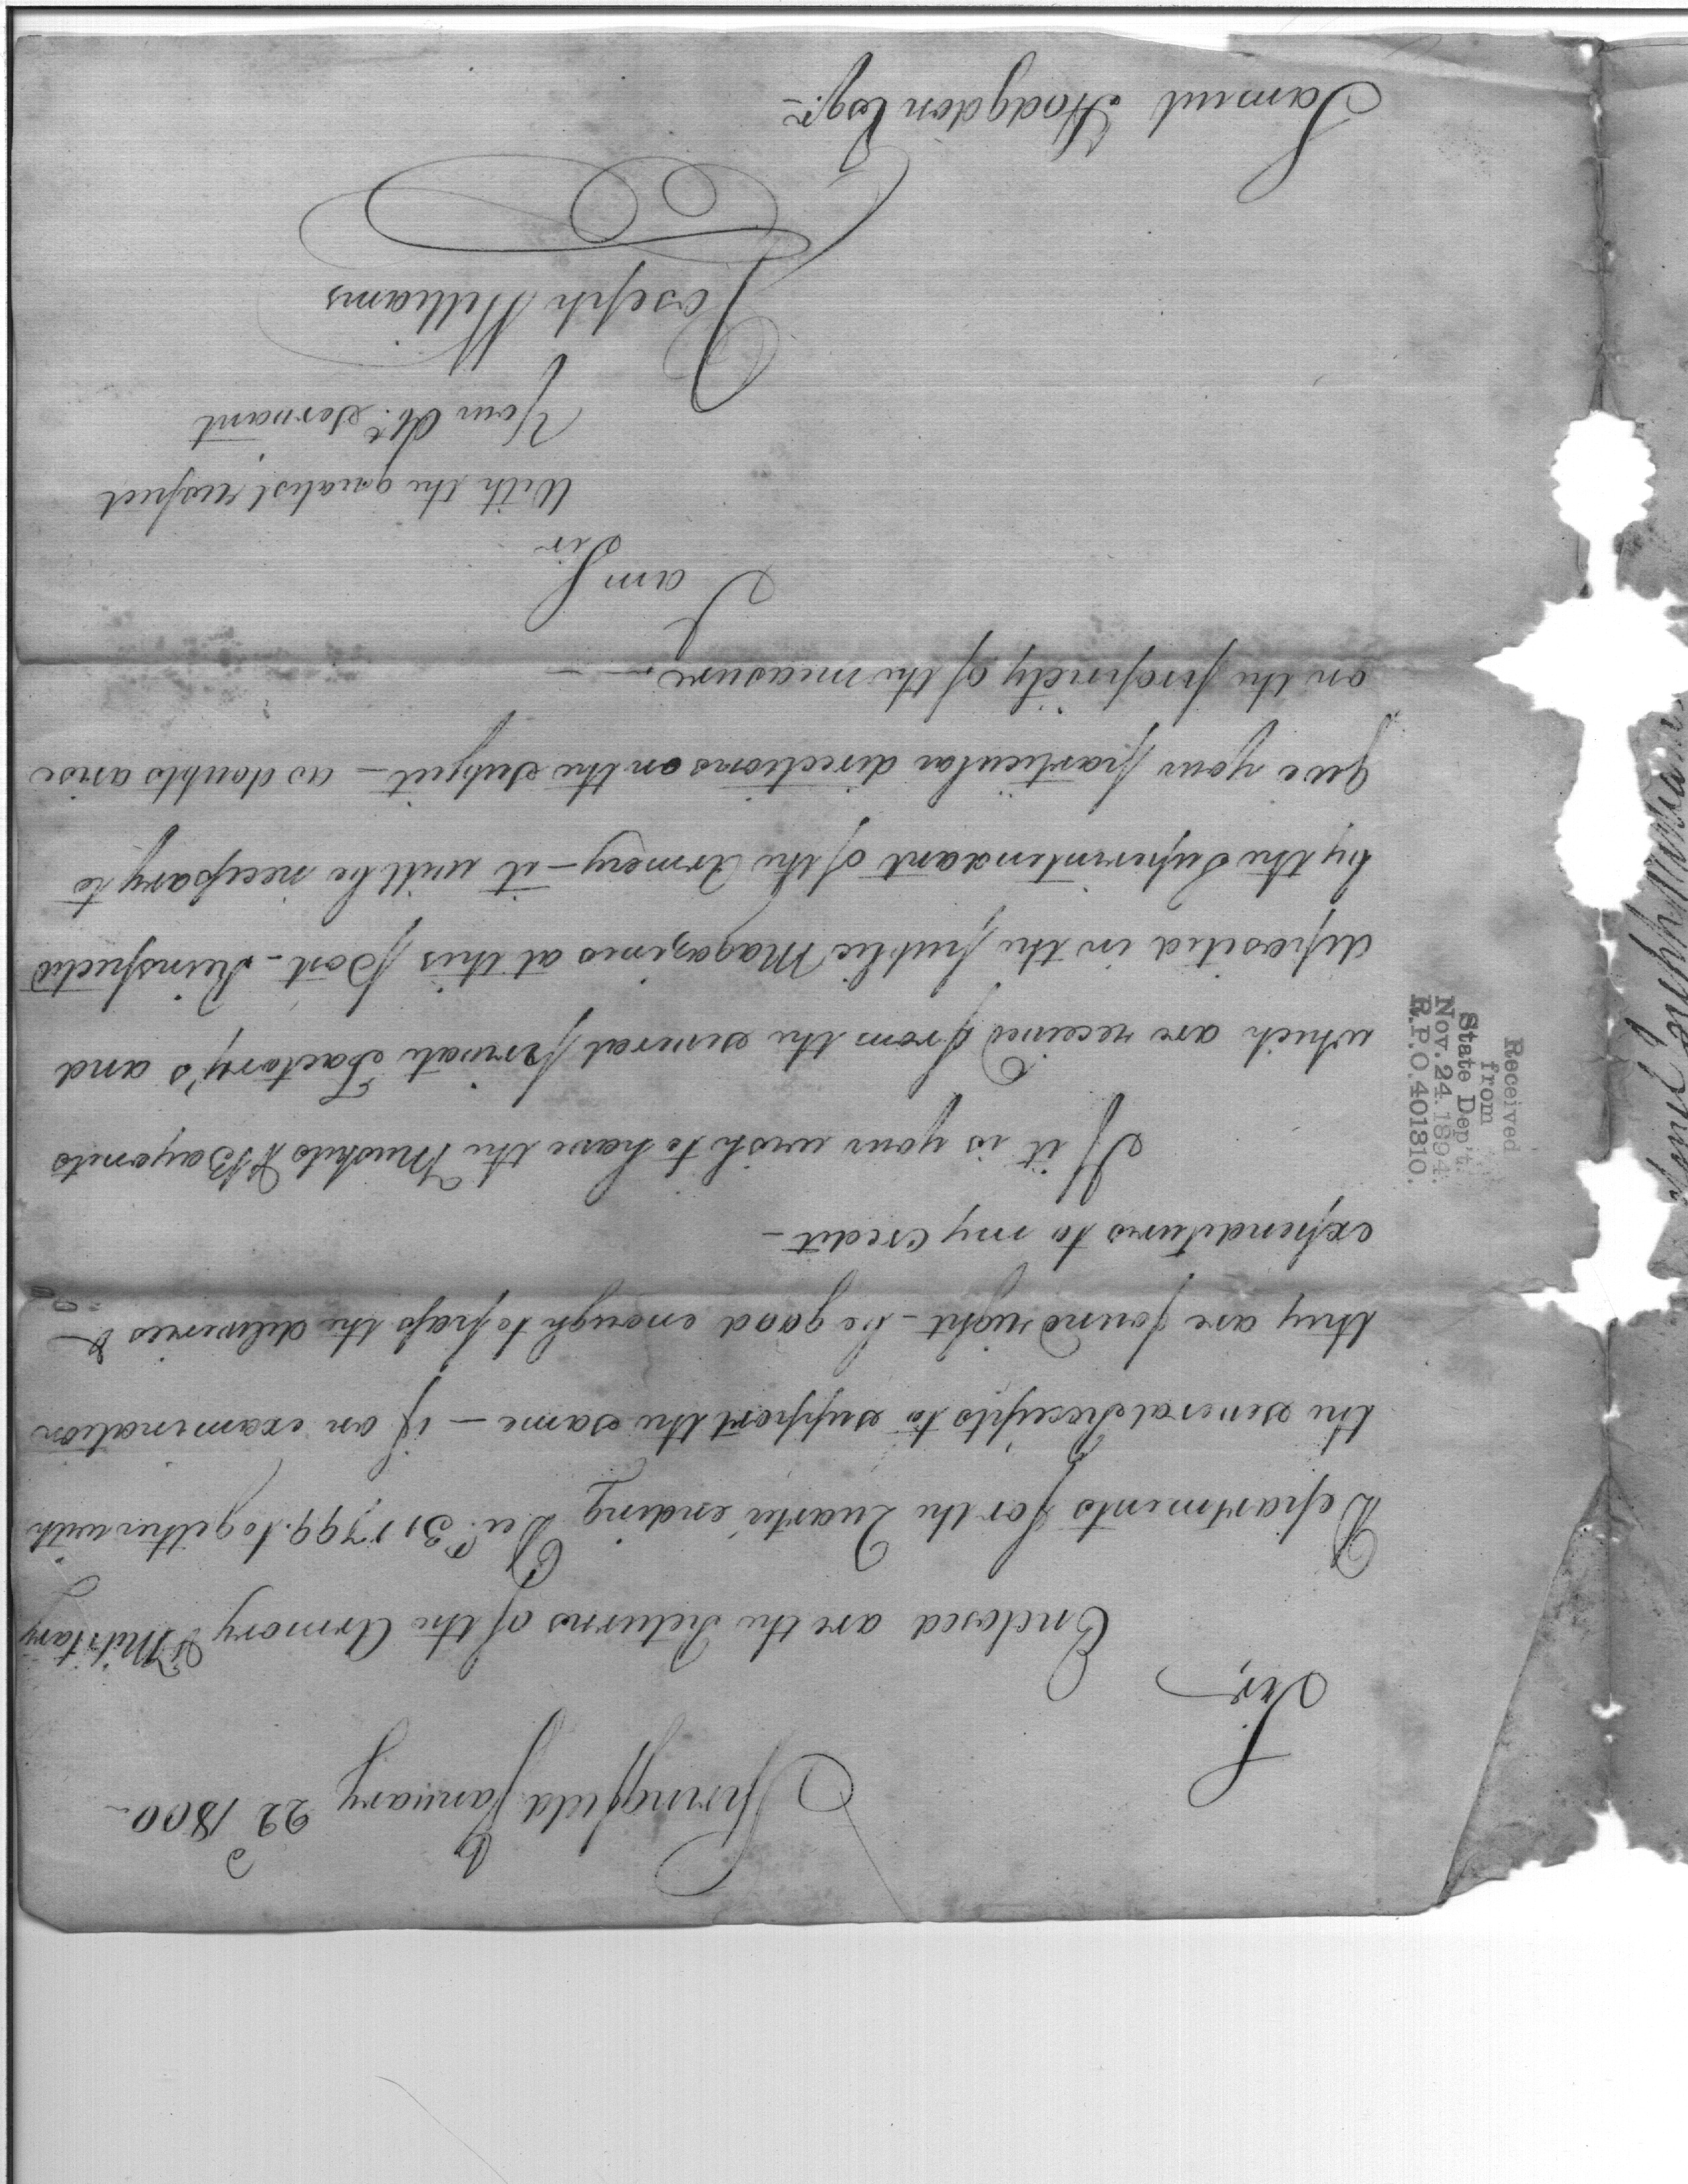 Springfield January 22d 1800 -
Sir,
Enclosed are the Returns of the Armory & Military
Departments for the Quarter ending Decr. 31 1799. together with
the several Receipts to support the same - if on examination
they are found right - be good enough to pass the deliveries &
expenditures to my credit -
If it is your wish to have the Muskets & Bayonets
which are received from the several private Factory's and
deposited in the public Magazines at this post - Reinspected
by the Superintendant of the Armory - it will be necessary to
give your particular directions on the subject - as doubts arise
on the propriety of the measure. -
I am Sir
With the greatest respect
Your Obt. Servant
Joseph Williams
Samuel Hodgdon Esqr. -
Received
from
State Dep't.
Nov. 24. 1894.
R.P.O. 401310.
Joseph Williams